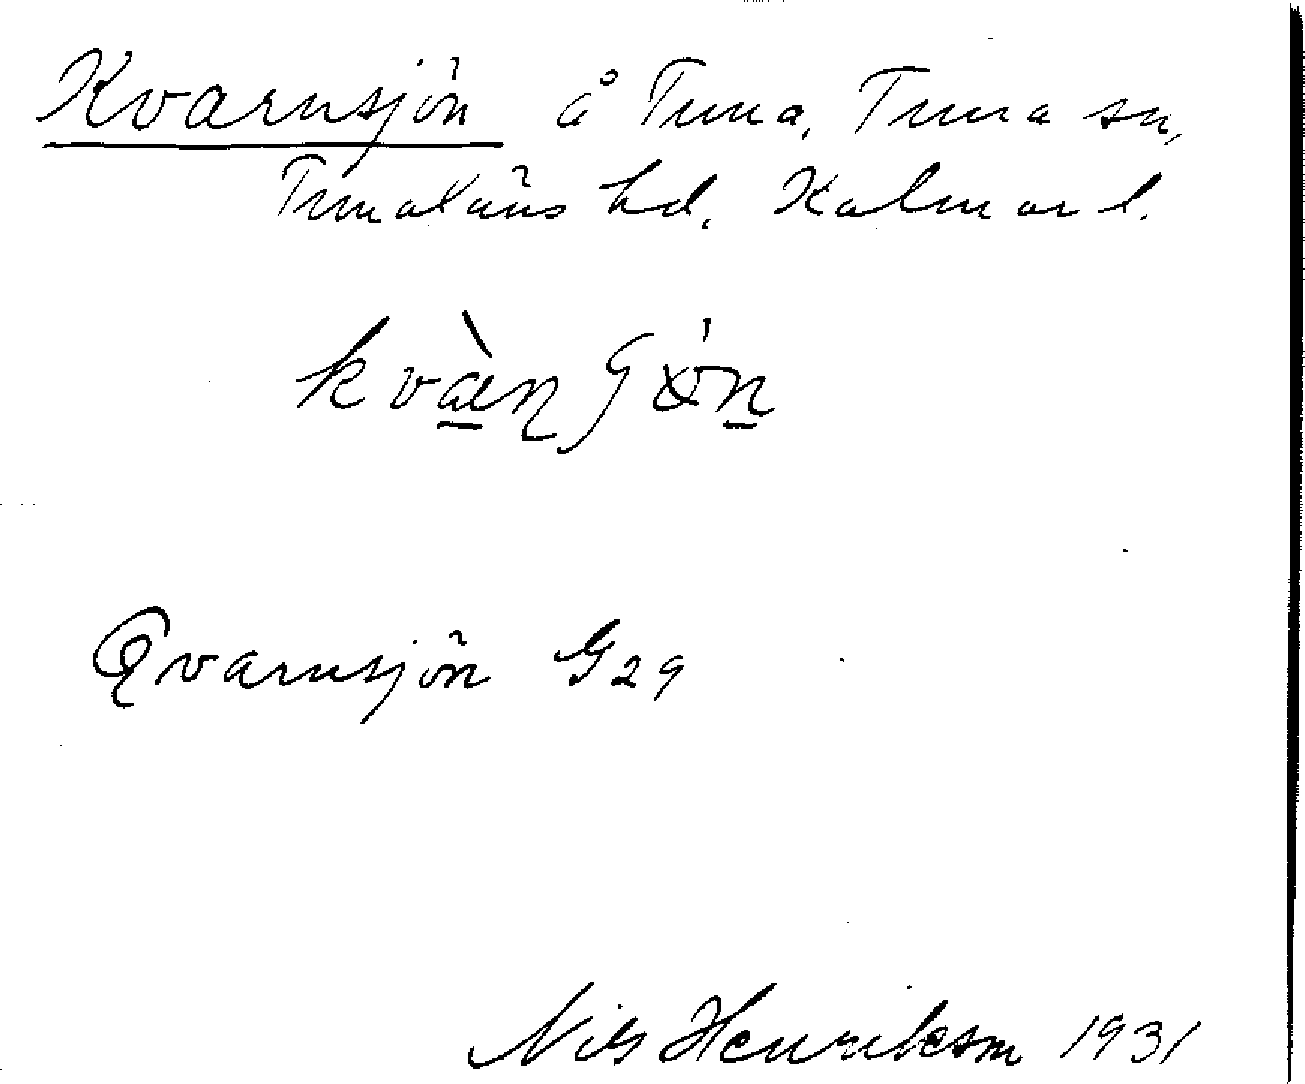 Kvarnsjön å Tuna, Tuna sn,
Tunaläns hd, Kalmar l.
Qvarnsjön G29
Nils Henrikson 1931